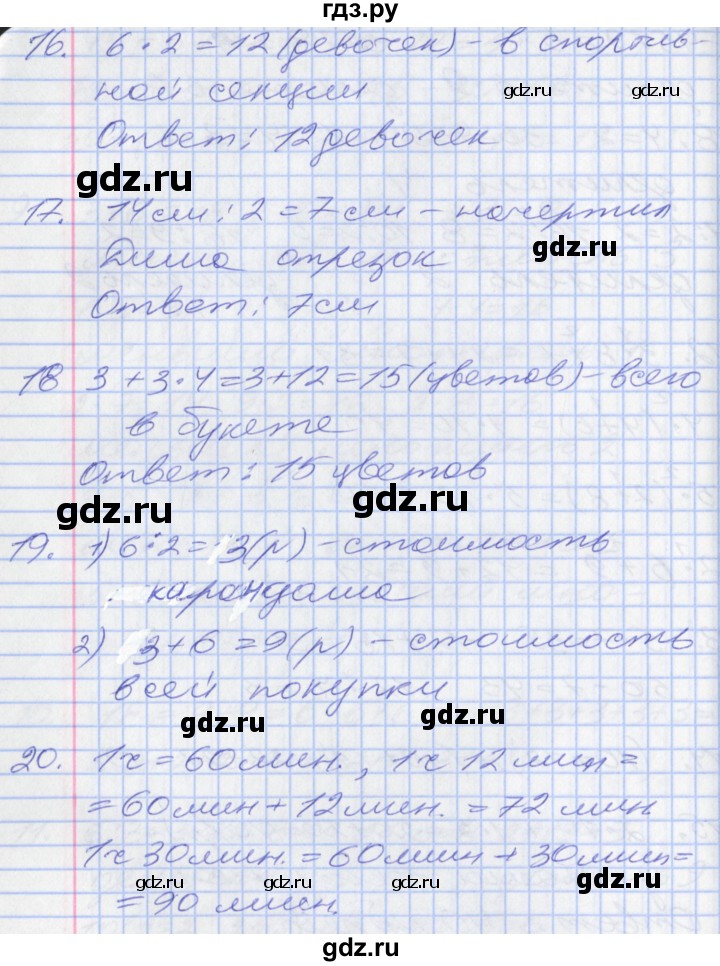 гдз.ру
16. 6 · 2 = 12 (девочек) - в спортив-
ной секции
gdz.ru gdz.ru
Ответ: 12 девочек
gdz.ru
17. 14 см : 2 = 7 см - начертил
gdz.ru
Дима отрезок
Ответ: 7 см
18 3 + 3 · 4 = 3 + 12 = 15 (цветов) - всего
в букете
Ответ: 15 цветов
gdz.ru gdz.ru
19. 1) 6 : 2 = 3 (р) - стоимость
карандаша
2) 3 + 6 = 9 (р) - стоимость
всей покупки
gdz.ru gdz.ru
20. 1 ч = 60 мин., 1 ч 12 мин =
= 60 мин + 12 мин. = 72 мин
1 ч 30 мин. = 60 мин + 30 мин =
gdz.ru gdz.ru gdz.ru gdz.ru
= 90 мин.
gdz.ru